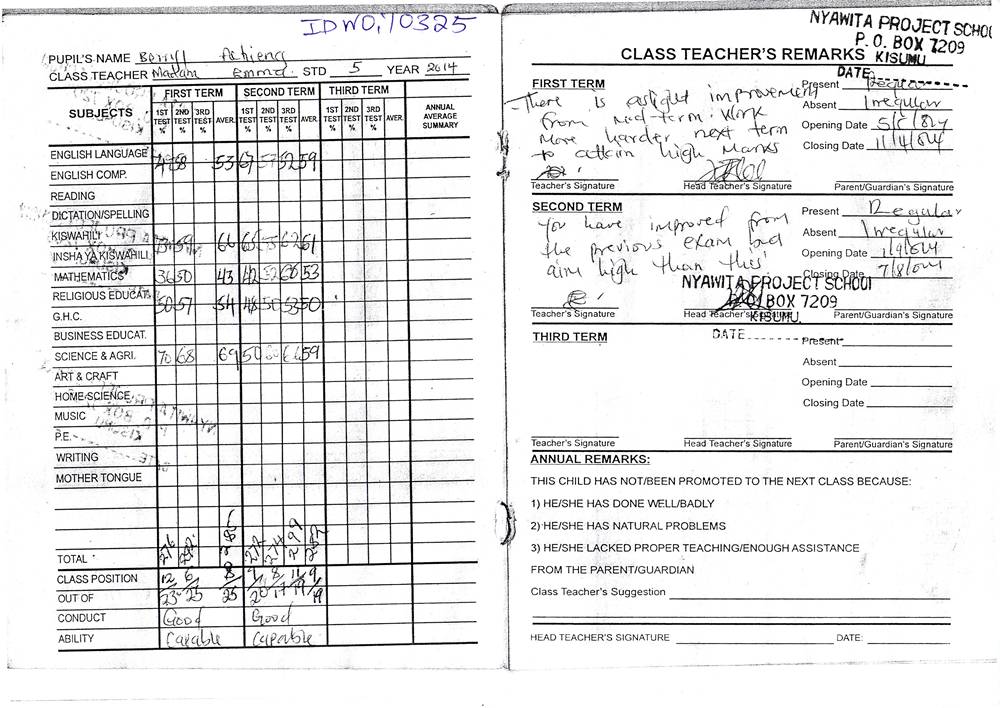 IDNO, 70325
PUPIL'S NAME Beryl Achieng
CLASS TEACHER Madam Emma STD 5 YEAR 2014
SUBJECTS
FIRST TERM SECOND TERM THIRD TERM
1ST TEST % 2ND TEST % 3RD TEST % AVER. 1ST TEST % 2ND TEST % 3RD TEST % AVER. 1ST TEST % 2ND TEST % 3RD TEST % AVER.
ANNUAL AVERAGE SUMMARY
ENGLISH LANGUAGE 68 53 67 57 52 59
ENGLISH COMP.
READING
DICTATION/SPELLING
KISWAHILI 59 66 62 61
INSHA YA KISWAHILI
MATHEMATICS 36 50 43 42 53
RELIGIOUS EDUCAT. 50 57 54 48 50 53 50
G.H.C.
BUSINESS EDUCAT.
SCIENCE & AGRI. 70 68 69 50 59
ART & CRAFT
HOME-SCIENCE
MUSIC
P.E.
WRITING
MOTHER TONGUE
TOTAL
CLASS POSITION 12 6 8 9 8 11 9
OUT OF 23 25 25 20 17 19 19
CONDUCT Good Good
ABILITY Capable Capable
NYAWITA PROJECT SCHOOL
P. O. BOX 7209
KISUMU
DATE
CLASS TEACHER'S REMARKS
FIRST TERM
There is aslight improvement
from mid-term. Work
more harder next term
to attain high marks
Present Regular
Absent Irregular
Opening Date
Closing Date 11/4/014
Teacher's Signature Head Teacher's Signature Parent/Guardian's Signature
SECOND TERM
You have improved from
the previous exam but
aim high than this
Present Regular
Absent Irregular
Opening Date
Closing Date 7/8/014
NYAWITA PROJECT SCHOOL
BOX 7209
KISUMU.
Teacher's Signature Head Teacher's Signature Parent/Guardian's Signature
DATE
THIRD TERM
Present
Absent
Opening Date
Closing Date
Teacher's Signature Head Teacher's Signature Parent/Guardian's Signature
ANNUAL REMARKS:
THIS CHILD HAS NOT/BEEN PROMOTED TO THE NEXT CLASS BECAUSE:
1) HE/SHE HAS DONE WELL/BADLY
2) HE/SHE HAS NATURAL PROBLEMS
3) HE/SHE LACKED PROPER TEACHING/ENOUGH ASSISTANCE
FROM THE PARENT/GUARDIAN
Class Teacher's Suggestion
HEAD TEACHER'S SIGNATURE DATE: